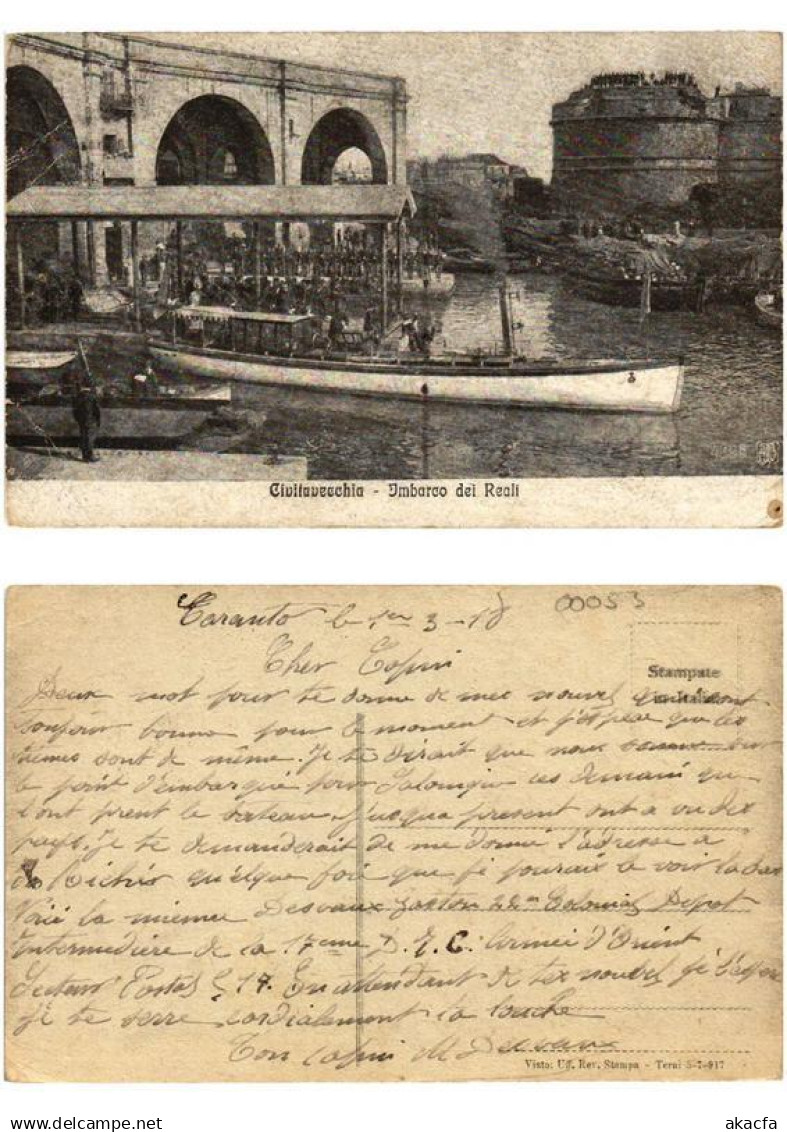 Civitavecchia - Imbarco dei Reali
Taranto le 1er 3-18
00053
Cher Copin
Stampate
in Italia
Deux mot pour te donné de mes nouvel qui sont
toujour bonne pour le moment et j'espère que les
tiennes sont de même. Je te dirait que nous somme sur
le point d'embarqué pour Salonique ces demain que
l'ont prent le bateau. Jusqua present ont a vu des
pays. Je te demanderait de me donné l'adresse a
Bichés quelque foie que je pouraix le voir la bas
Voie la mienne Desvaux Gaston 22em Colonial Depot
Intermedière de la 17eme D.I.C. Armée d'Orient
Secteur Postal 517. En attendant de tes nouvel je
te serre cordialement ta louche
Ton copin M Desvaux
Visto: Uff. Rev. Stampa - Terni 5-7-917
www.delcampe.net
akacfa